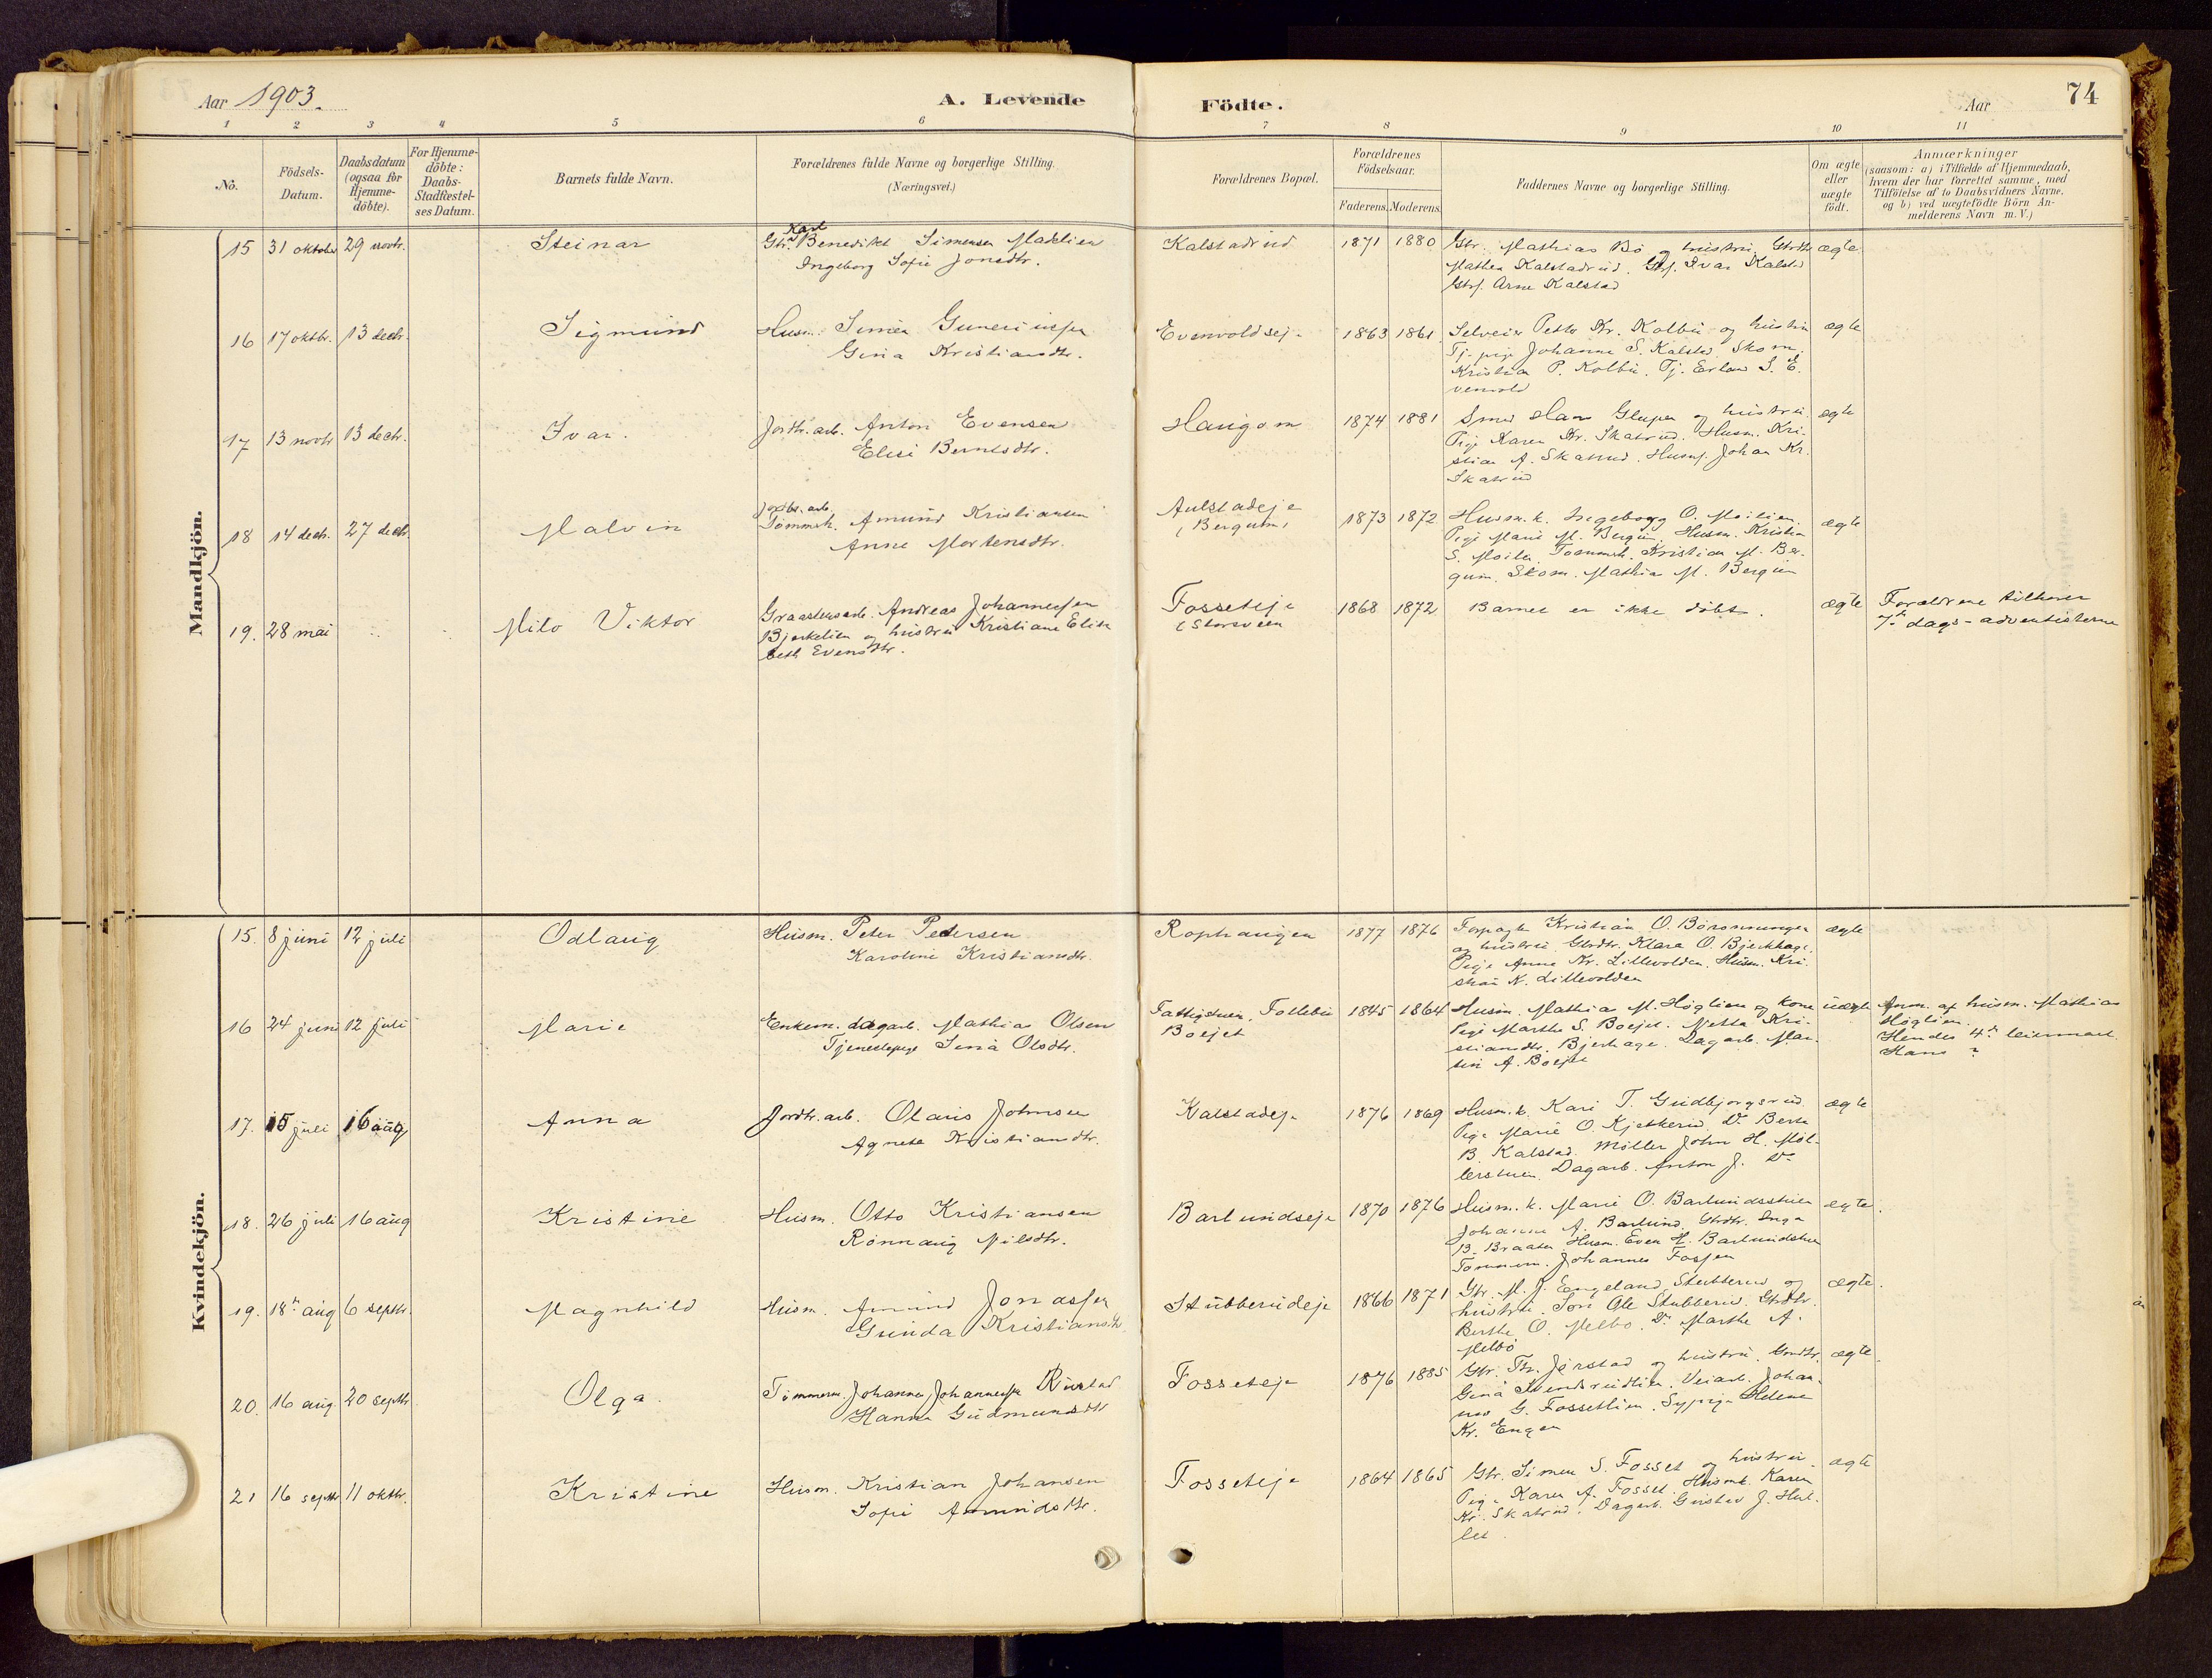 Aar 1903.
A. Levende Födte.
Aar
74
1 2 3 4 5 6 7 8 9 10 11
No.
Födsels-
Datum.
Daabsdatum
(ogsaa for
Hjemme-
döbte).
For Hjemme-
döbte:
Daabs-
Stadfæstel-
ses Datum.
Barnets fulde Navn.
Forældrenes fulde Navne og borgerlige Stilling.
(Næringsvei.)
Forældrenes Bopæl.
Forældrenes
Födselsaar.
Faderens. Moderens.
Faddernes Navne og borgerlige Stilling.
Om ægte
eller
uægte
födt.
Anmærkninger
(saasom: a) i Tilfælde af Hjemmedaab,
hvem der har forrettet samme, med
Tilföielse af to Daabsvidners Navne.
og b) ved uægtefödte Börn An-
melderens Navn m. V.)
Mandkjön.
15 31 oktober 29 novbr.
Steinar
Karl
Gbr. Benedikt Simensen
Ingeborg Sofie Jonsdtr.
Kalstadrud
1871 1880
Gbr. Mathias Bö og hustru, Gbrdtr
Mathea Kalstadrud. Gbrs. Ivar Kalstd
Gbrs. Arne Kalstad
ægte
16 17 oktbr. 13 decbr.
Sigmund
Husm. Simen
Gina Kristiansdtr.
Evenvoldsej.
1863 1861
Selveier Petter Kr. Kolbu og hustru
Tj. pige Johanne S. Kalstad. Skom.
Kristian P. Kolbu. Tj. S. E-
venvold
ægte
17 13 novbr 13 decbr.
Ivar.
Jordbr. arb. Anton Evensen
Elise Berntsdtr.
Haugom
1874 1881
Smed Hans og hustru.
Pige Karen Kr. Skatrud. Husm. Kri-
stian A. Skatrud. Husms. Johan Kr.
Skatrud
ægte
18 14 decbr. 27 decbr.
Malvin
Jordbr. arb.
Tömmerh. Amund Kristiansen
Anne Mortensdtr.
Aulstadeje
(Bergum)
1873 1872
Husm. k. Ingeborg O. Moilien.
Pige Marie M. Bergum. Husm. Kristian
S. Moilien. Tömmerh. Kristian M. Ber-
gum. Skom. Mathias M. Bergum
ægte
19. 28 mai
Milo Viktor
Graastensarb. Andreas Johannessen
Bjerkelien og hustru Kristiane Elisa
beth Evensdtr.
Fosseteje
(Storsveen
1868 1872
Barnet er ikke döbt.
ægte
Forældrene tilhører
7de dags-adventisterne
Kvindekjön.
15. 8 juni 12 juli
Odlaug
Husm. Peter Pedersen
Karoline Kristiansdtr.
Rophaugen
1877 1876
Forpagter Kristian O.
og hustru Gbrdtr. Klara O. Bjerkhage.
Pige Anne Kr. Lillevolden. Husm. Kri-
stian N. Lillevolden
ægte
16 24 juni 12 juli
Marie
Enkem. dagarb. Mathias Olsen
Tjenestepige Sina Olsdtr.
Fattigstuen, Follebu
Boejet
1845 1864
Husm. Mathias M. Höglien og kone
Pige Marthe S. Boejet. Netta Kri-
stiansdtr. Bjerhage. Dagarb. Mar-
tin A. Boejet
uægte
Anm. af husm. Mathias
Höglien.
Hendes 4de leiermaal.
Hans ?
17. 15 juli 16 aug
Anna
Jordbr. arb. Olaus Johnsen
Agnete Kristiansdtr.
Kalstadeje
1876 1869
Husm. k. Kari T. Gudbjørgsrud
Pige Marie O. Kjetkerud. Do Berte
B. Kalstad. Möller John H. Möl-
lerstuen. Dagarb. Anton J. Do
ægte
18. 26 juli 16 aug
Kristine
Husm. Otto Kristiansen
Rönnaug Nilsdtr.
Barlundseje
1870 1876
Husm. k. Marie O. Barlundsstuen
Johanne A. Barlund. Gbrdtr. Inga
B. Braaten. Husm. Even H. Barlundstuen
Tömmerm. Johannes Fossen
ægte.
19. 18de aug 6 septbr.
Magnhild
Husm. Amund Jonassen
Gunda Kristiansdtr.
Stubberudeje
1866 1871
Gbr. M. J. Engeland Stubberud og
hustru. Tore Ole Stubberud. Gbrdtr.
Berthe O. Melbö. Do Marthe A.
Melbö
ægte.
20. 16 aug 20 septbr
Olga.
Tömmerm. Johannes Johannessen Rustad
Hanna Gudmundsdtr
Fosseteje
1876 1885
Gbr. Th. Jörstad og hustru. Gbrdtr.
Gina. Veiarb. Johan-
nes G. Fossetlien. Sypige Helene
Kr. Engen
ægte.
21 16 septbr 11 oktbr.
Kristine
Husm. Kristian Johansen
Sofie Amundsdtr.
Fosseteje
1864 1865
Gbr. Simen S. Fosset og hustru.
Pige Karen A. Fosset. Husmk. Karen
Kr. Skatrud. Dagarb. Gustav J. Hul-
let.
ægte